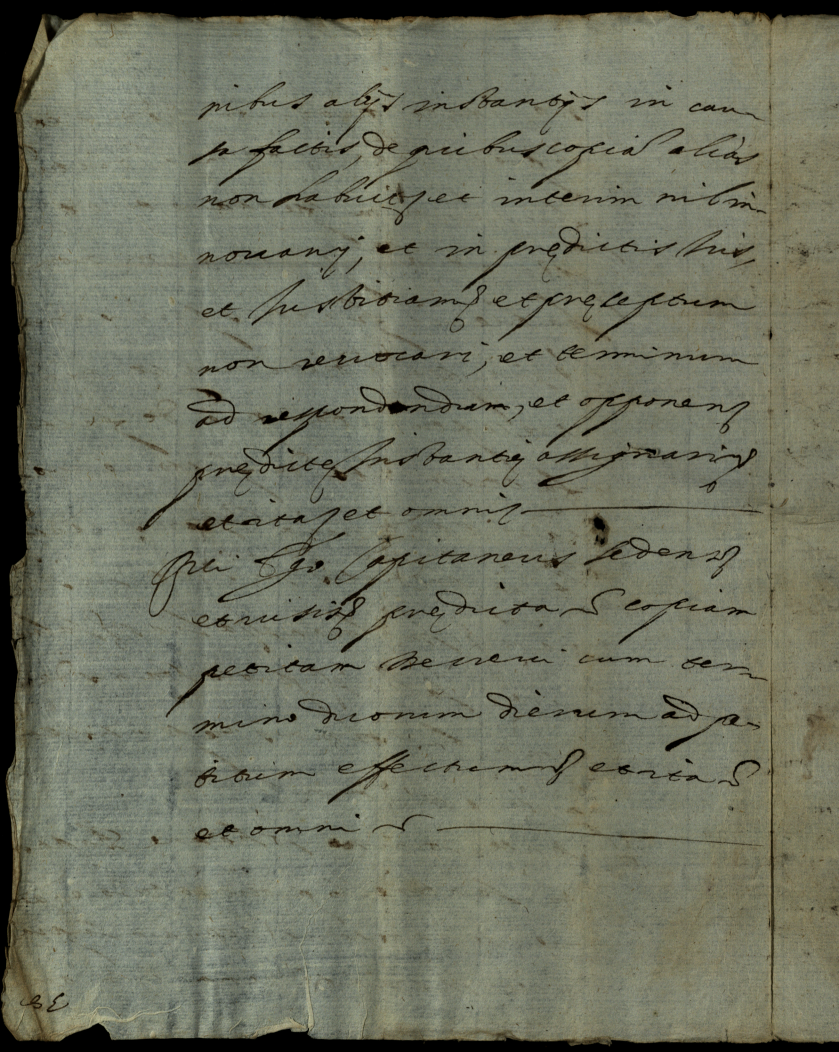 nibus alijs instantijs in cau-
sa factis, de quibus copia alias
non habuit et interim nil in-
nouari, et in prędictis ius,
et Iustitiam et pręceptum
non reuocari, et terminum
ad respondendum, et opponend
prędictę Instantię assignari
et ita et omni
Qui Ego Capitaneus sedens
et uisis prędicta copiam
petitam decreui cum ter-
mino duorum dierum ad pe-
titum effectum et ita
et omni